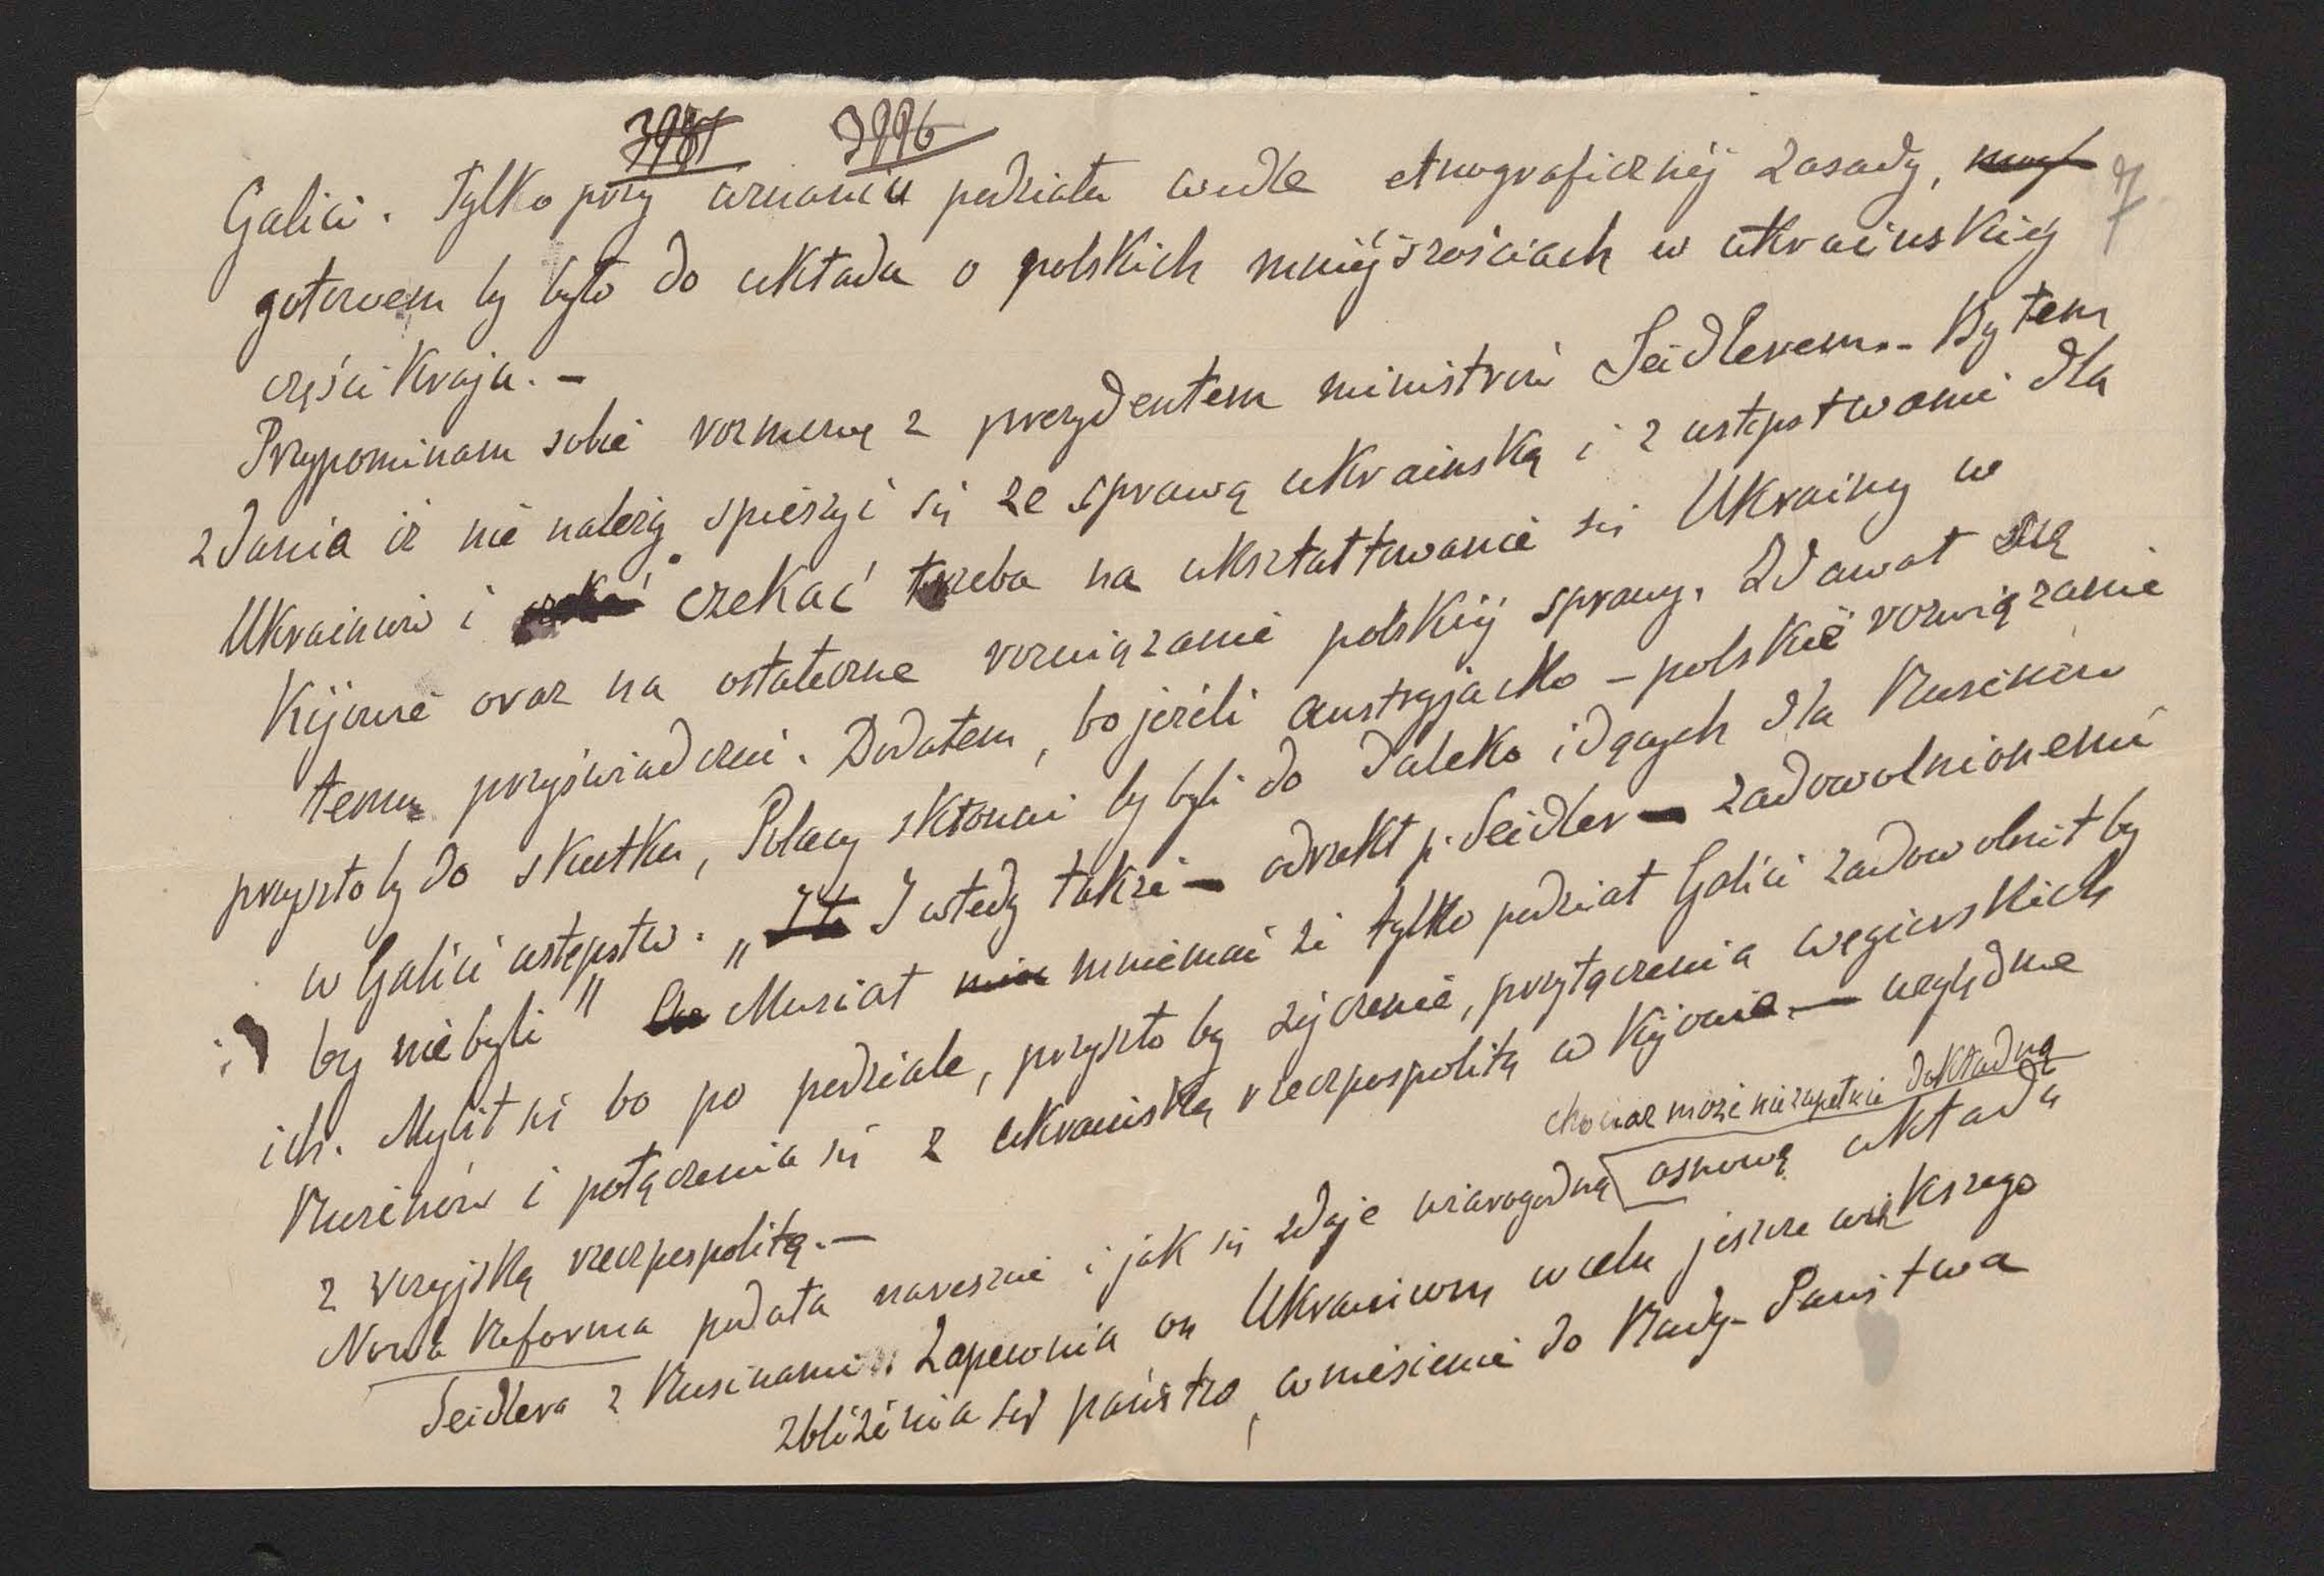 3981 3996
7
Galicii. Tylko przy uznaniu podziału wedle etnograficznéj zasady, mog
gotowem by było do układu o polskich mniéjszościach w ukraińskiéj
części Kraju. –
Przypominam sobie rozmowę z prezydentem ministrów Seidlerem. – Byłem
zdania iż nie należy spieszyć się ze sprawą ukraińską i z ustępstwami dla
Ukraińców i czekać czekać trzeba na ukształtowanie się Ukrainy w
Kijowie oraz na ostateczne rozwiązanie polskiéj sprawy. Zdawał się
temu przyświadczać. Dodałem, bo jeżeli austryjacko – polskie rozwiązanie
przyszło by do skutku, Polacy skłonni by byli do daleko idących dla Rusinów
w Galicii ustępstw. „I ta I wtedy także – odrzekł p. Seidler – zadowolnionemi
by nie byli" Musiał mniemać że tylko podział Galicii zadowolnił by
ich. Mylił się bo po podziale, przyszło by życzenie, przyłączenia węgierskich
Rusinów i połączenia się z ukraińską rzecząpospolitą w Kijowie – względnie
z rosyjską rzecząpospolitą. –
chociaż może nie zupełnie dokładną
Nowa Reforma podała nareszcie i jak się zdaje wiarogodną osnowę układu
Seidlera z Rusinami. Zapewnia on Ukraińcom w celu jeszcze większego
zbliżenia się państw, wniesienie do Rady – Państwa